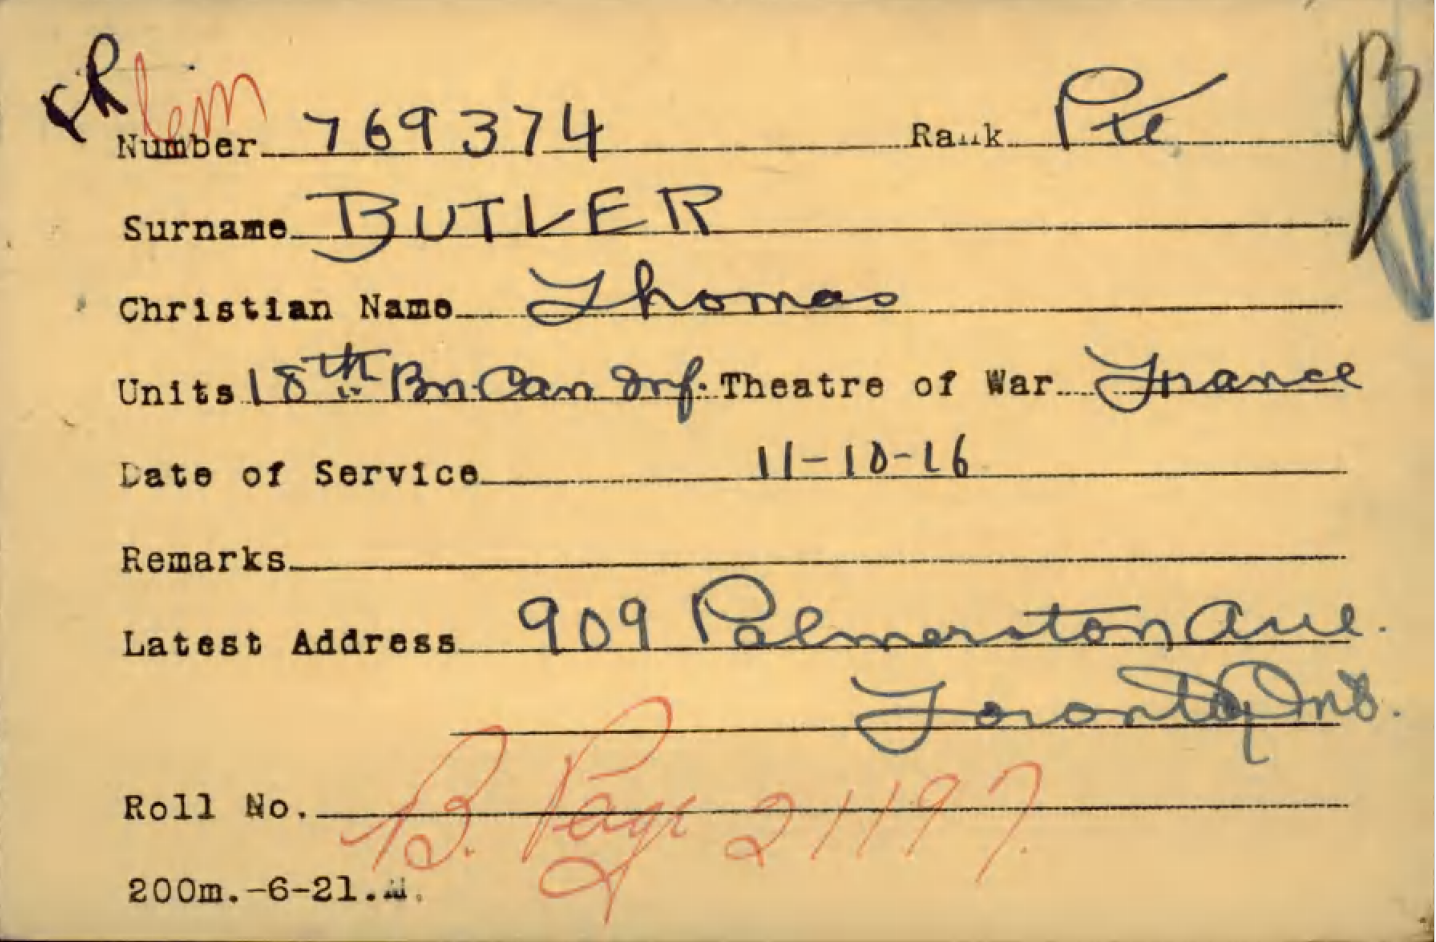 Number 769374 Rank Pte
Surname BUTLER
Christian Name Thomas
Units 18th Bn Can Inf. Theatre of War France
Date of Service 11-10-16
Remarks
Latest Address 909 Palmerston Ave.
Toronto, Ont.
Roll No. B. Page 21197.
200m.-6-21.